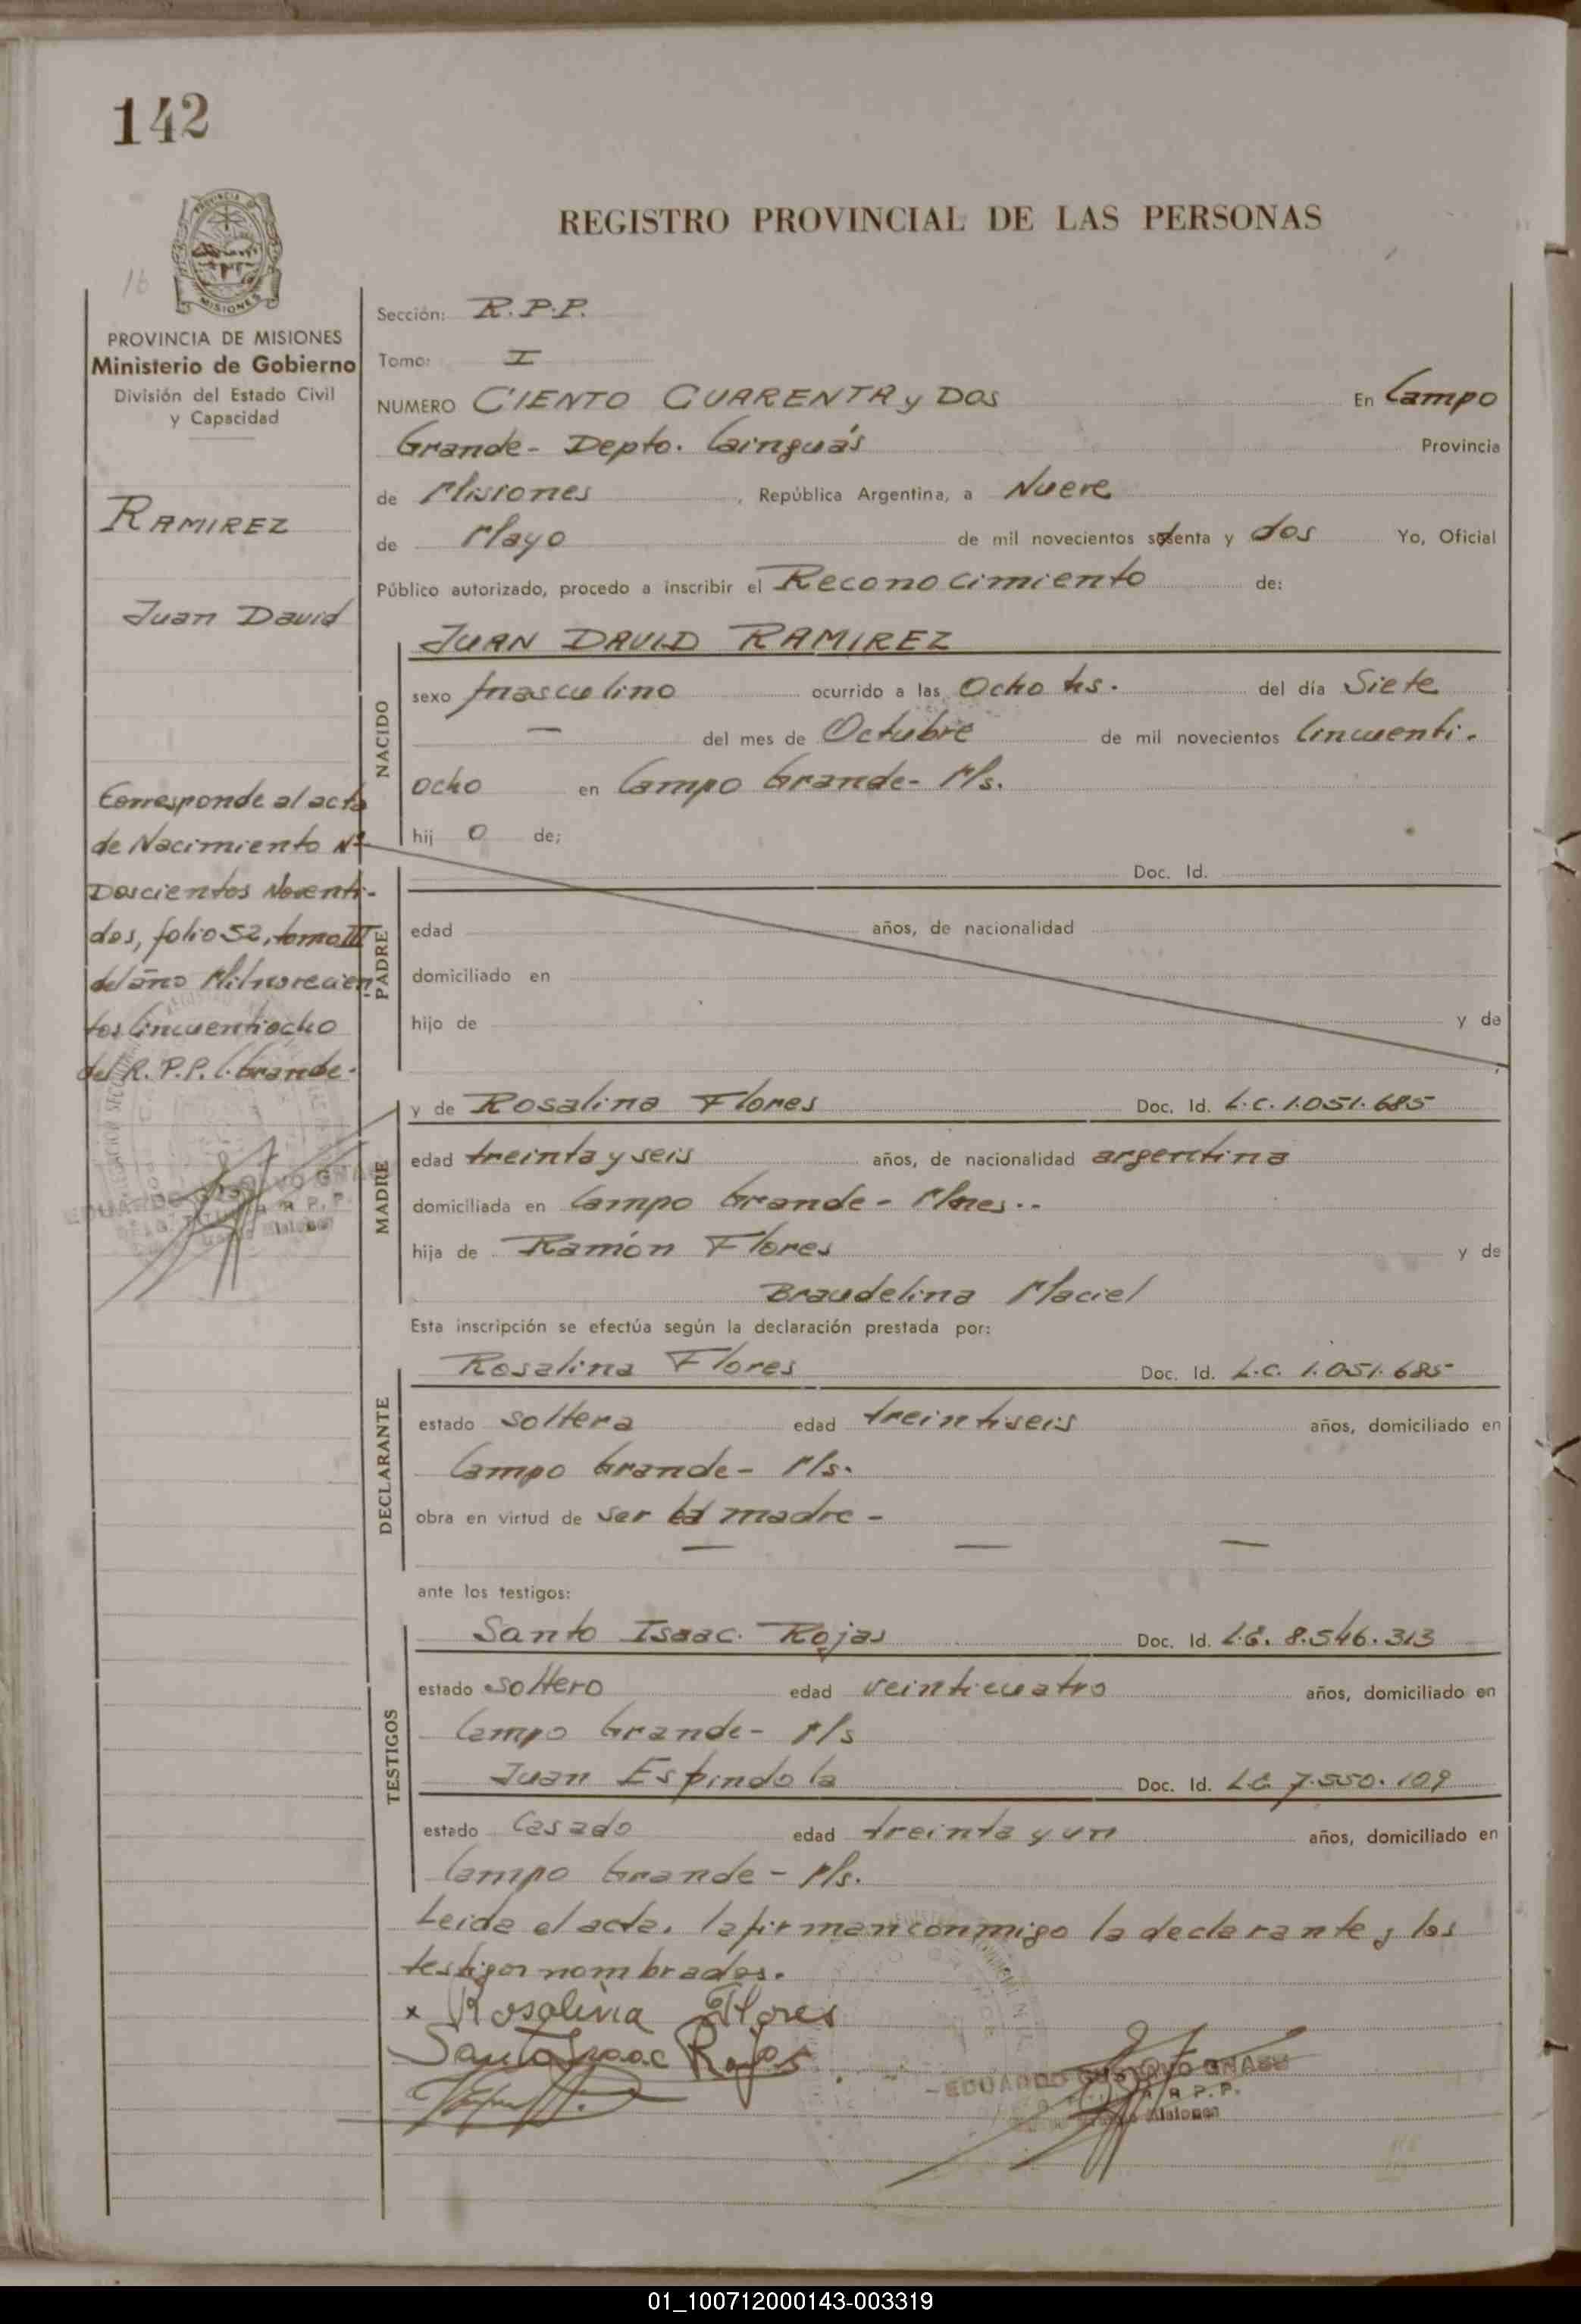 142
REGISTRO PROVINCIAL DE LAS PERSONAS
16
PROVINCIA DE
MISIONES
PROVINCIA DE MISIONES
Ministerio de Gobierno
División del Estado Civil
y Capacidad
RAMIREZ
Juan David
Corresponde al acta
de Nacimiento Nº
Doscientos Noventi-
dos, folio 52, tomo III
del año Milnovecien
tos Cincuentiocho
del R.P.P. C. Grande-
Sección: R.P.P.
Tomo: I
NUMERO CIENTO CUARENTA y DOS En Campo
Grande- Depto. Cainguás Provincia
de Misiones , República Argentina, a Nueve
de Mayo de mil novecientos setenta y dos Yo, Oficial
Público autorizado, procedo a inscribir el Reconocimiento de:
NACIDO
JUAN DAVID RAMIREZ
sexo masculino ocurrido a las Ocho hs. del día Siete
— del mes de Octubre de mil novecientos Cincuenti-
ocho en Campo Grande- Ms.
hij o de;
PADRE
Doc. Id.
edad años, de nacionalidad
domiciliado en
hijo de y de
MADRE
y de Rosalina Flores Doc. Id. L.C. 1.051.685
edad treinta y seis años, de nacionalidad argentina
domiciliada en Campo Grande- Mnes..
hija de Ramón Flores y de
Braudelina Maciel
Esta inscripción se efectúa según la declaración prestada por:
DECLARANTE
Rosalina Flores Doc. Id. L.C. 1.051.685
estado soltera edad treintiseis años, domiciliado en
Campo Grande- Ms.
obra en virtud de ser la madre -
— — —
ante los testigos:
TESTIGOS
Santo Isaac. Rojas Doc. Id. L.E. 8.546.313
estado soltero edad veinticuatro años, domiciliado en
Campo Grande- Ms
Juan Espindola Doc. Id. L.E. 7.550.109
estado Casado edad treinta y un años, domiciliado en
Campo Grande- Ms.
Leida el acta, la firman conmigo la declarante y los
testigos nombrados.
x Rosalina Flores
Santo Isaac Rojas
EDUARDO GUSTAVO
R.P.P.
Misiones
01_100712000143-003319